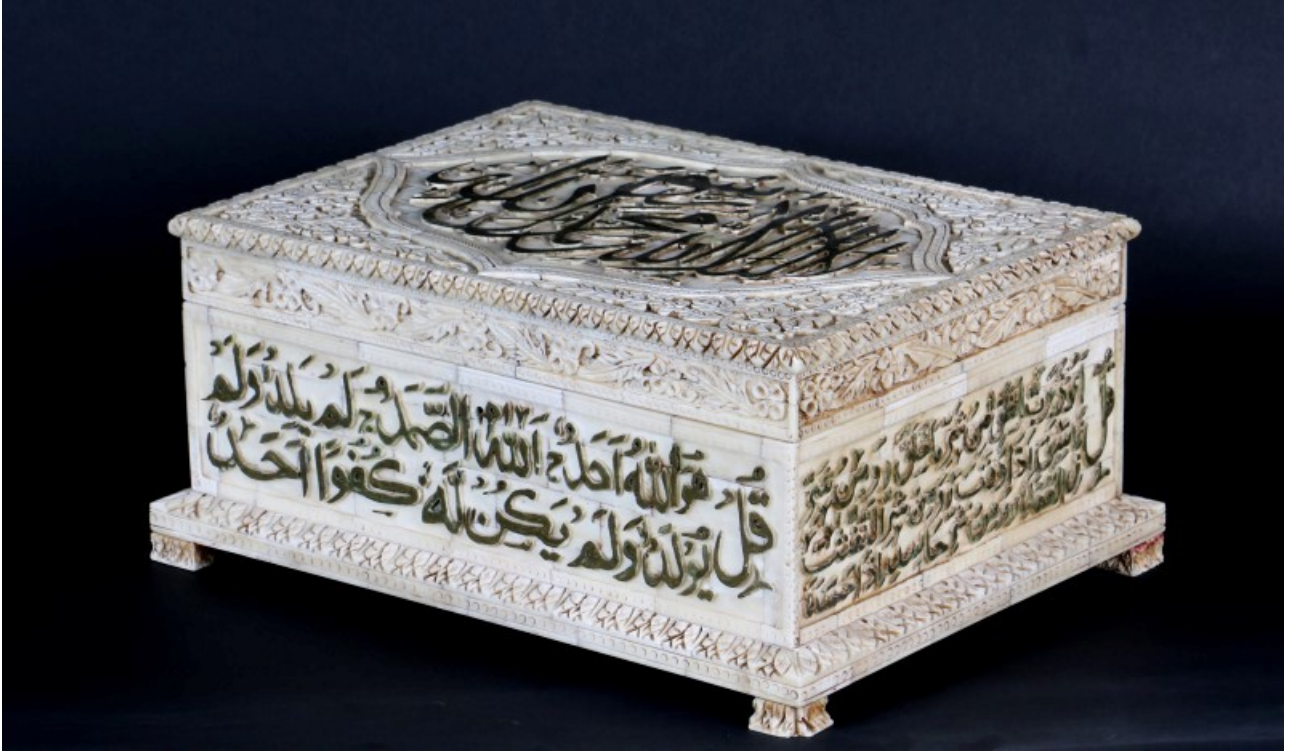 قُل هُوَ اللهُ اَحَدٌ ج اَللهُ الصَّمَدُ ج لَم يَلِد وَلَم
يُولَد وَلَم يَكُن لَّهُ كُفُوًا اَحَدٌ
قُل اَعُوذُ بِرَبِّ الفَلَقِ مِن شَرِّ مَا خَلَقَ وَمِن شَرِّ
غَاسِقٍ اِذَا وَقَبَ وَمِن شَرِّ النَّفّٰثٰتِ
فِى العُقَدِ وَمِن شَرِّ حَاسِدٍ اِذَا حَسَدَ